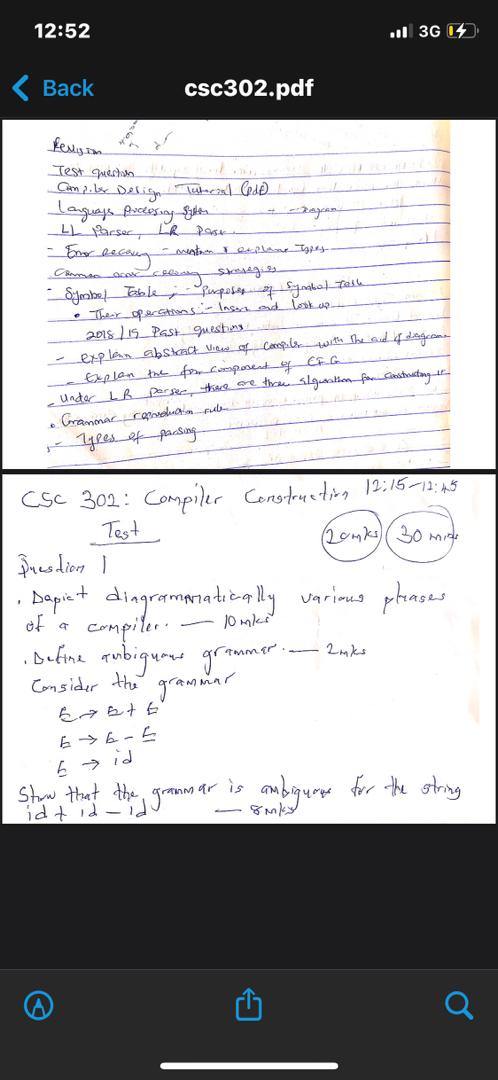 12:52
3G
Back
csc302.pdf
Revision
Test question
Compiler Design Tutorial (pdf)
Language processing system
LL Parser, LR Parse
- Error Recovery - mention & explain Types
Common error recovery strategies
- Symbol Table, - Purposes of Symbol Table
• Their operations:- Insert and look up
2018/19 Past questions
- explain abstract view of compiler with the aid of diagram
- Explain the four component of CFG
- Under LR parser, there are three algorithm for constructing it
• Grammar rule
- Types of parsing
CSC 302: Compiler Construction 12:15-12:45
Test
20mks
30 mins
Question 1
. Depict diagrammatically various phases
of a compiler. — 10mks
. Define ambiguous grammar. — 2mks
Consider the grammar
E → E + E
E → E - E
E → id
Show that the grammar is ambiguous for the string
id + id - id — 8mks